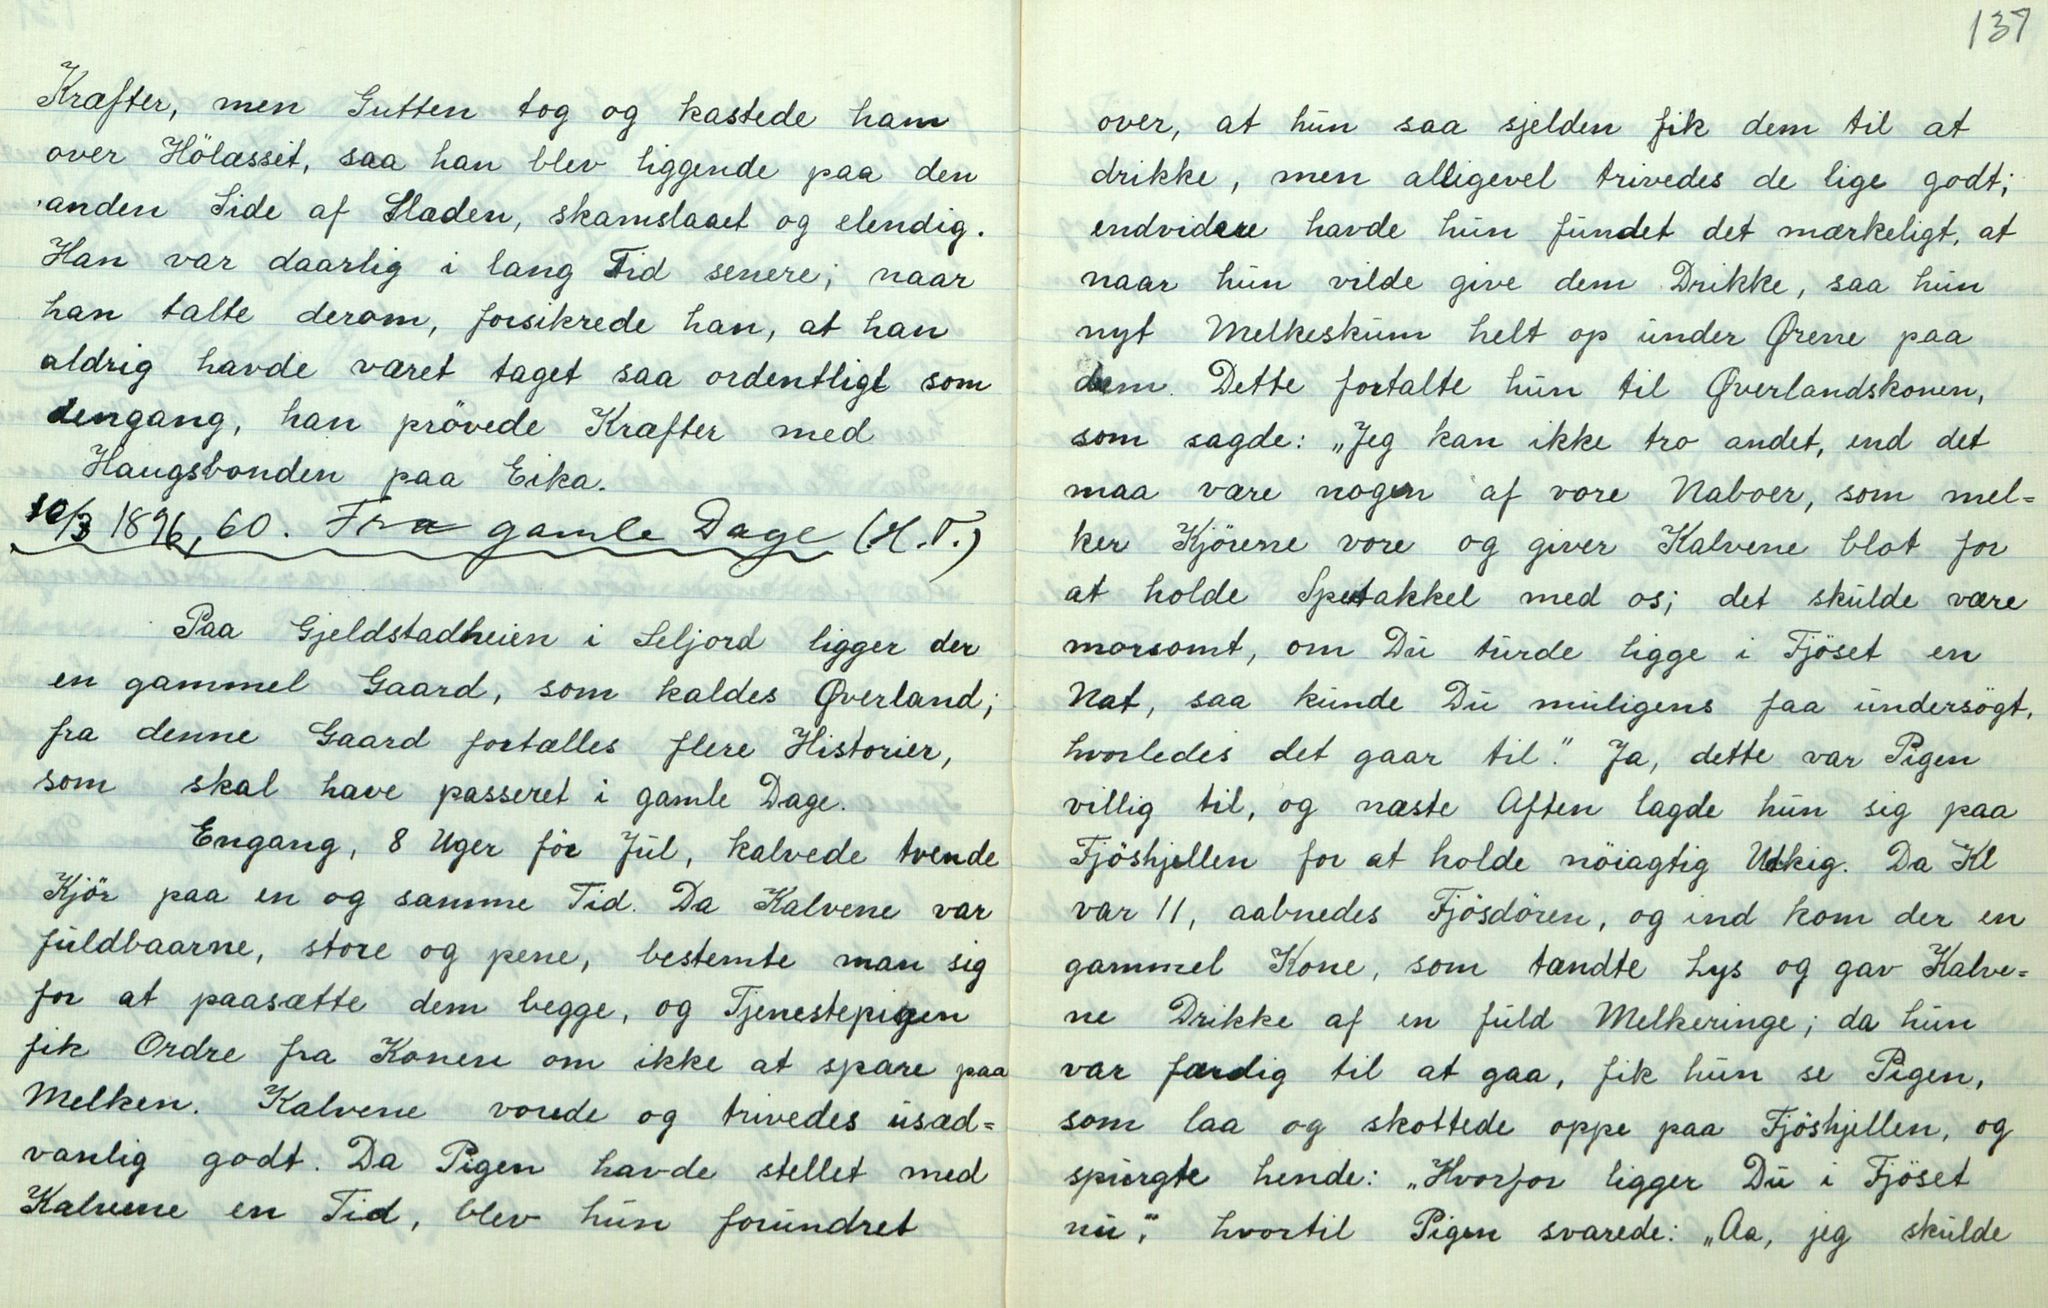 Kræfter, men Gutten tog og kastede ham
over Hölæsset, saa han blev liggende paa den
anden Side af Slæden, skamslaaet og elendig.
Han var daarlig i lang Tid senere; naar
han talte derom, forsikrede han, at han
aldrig havde været taget saa ordentligt som
dengang, han prövede Kræfter med
Haugsbonden paa Eika.
10/3 1896, 60. Fra gamle Dage (H.T.)
Paa Gjeldstadheien i Seljord ligger der
en gammel Gaard, som kaldes Øverland;
fra denne Gaard fortælles flere Historier,
som skal have passeret i gamle Dage.
Engang, 8 Uger för Jul, kalvede tvende
Kjör paa en og samme Tid. Da Kalvene var
fuldbaarne, store og pene, bestemte man sig
for at paasætte dem begge, og Tjenestepigen
fik Ordre fra Konen om ikke at spare paa
Melken. Kalvene voxede og trivedes usæd=
vanlig godt. Da Pigen havde stellet med
Kalvene en Tid, blev hun forundret
137
over, at hun saa sjelden fik dem til at
drikke, men alligevel trivedes de lige godt;
endvidere havde hun fundet det mærkeligt, at
naar hun vilde give dem Drikke, saa hun
nyt Melkeskum helt op under Ørene paa
dem. Dette fortalte hun til Øverlandskonen,
som sagde: „Jeg kan ikke tro andet, end det
maa være nogen af vore Naboer, som mel=
ker Kjörene vore og giver Kalvene blot for
at holde Spetakkel med os; det skulde være
morsomt, om Du turde ligge i Fjöset en
Nat, saa kunde Du muligens faa undersögt,
hvorledes det gaar til." Ja, dette var Pigen
villig til, og næste Aften lagde hun sig paa
Fjöshjellen for at holde nöiagtig Udkig. Da Kl
var 11, aabnedes Fjösdören, og ind kom der en
gammel Kone, som tændte Lys og gav Kalve=
ne Drikke af en fuld Melkeringe; da hun
var færdig til at gaa, fik hun se Pigen,
som laa og skottede oppe paa Fjöshjellen, og
spurgte hende: „Hvorfor ligger Du i Fjöset
nu," hvortil Pigen svarede: „Aa, jeg skulde